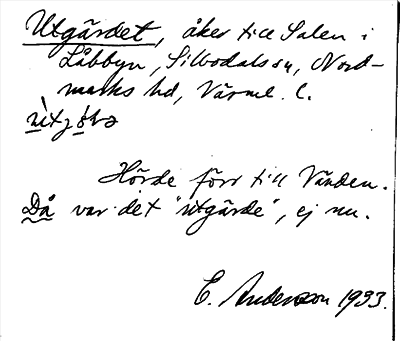 Utgärdet, åker till Salen i
Låbbyn, Silbodals sn, Nord-
marks hd, Värml. l.
Hörde förr till Vänden.
Då var det "utgärde", ej nu.
E. Anderson 1933.